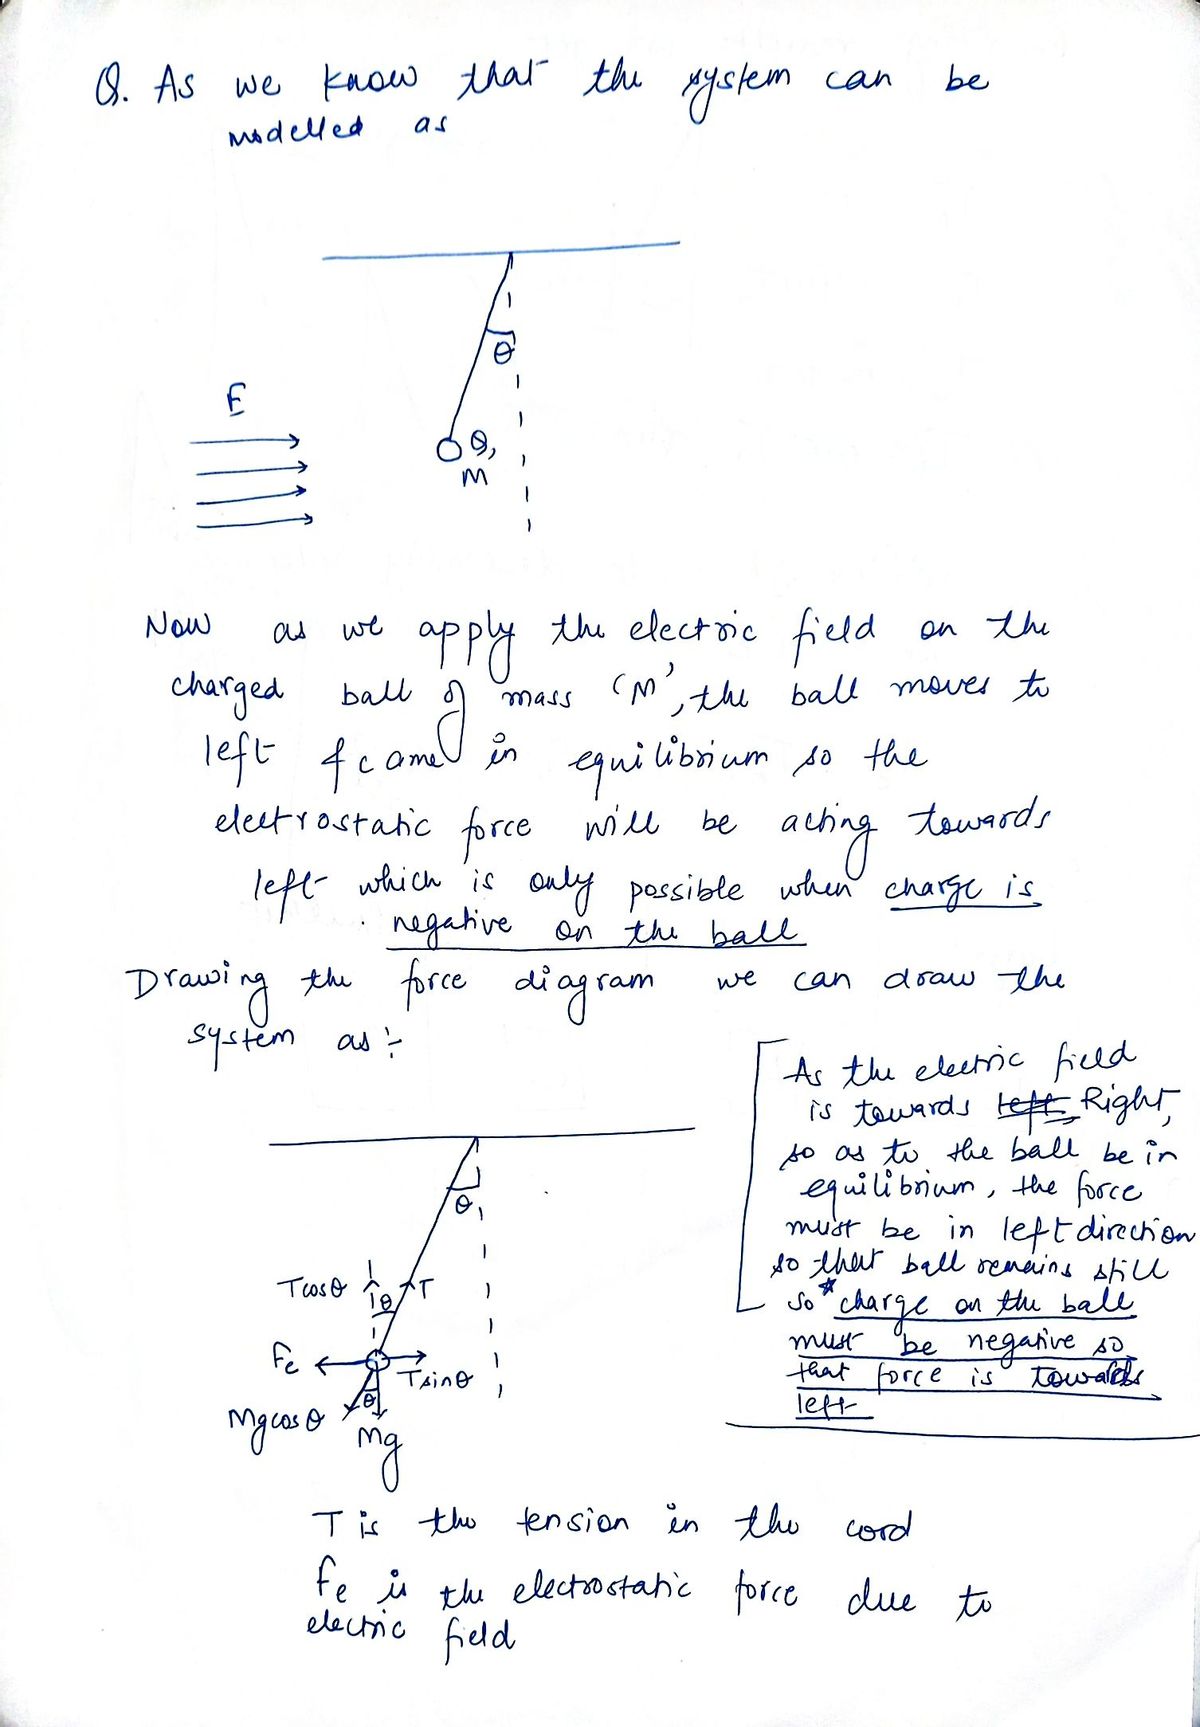 Q. As we know that the system can be
modelled as
θ
E
Q,
M
Now as we apply the electric field on the
charged ball of mass 'M', the ball moves to
left & came in equilibrium so the
electrostatic force will be acting towards
left which is only possible when charge is
negative on the ball
Drawing the force diagram we can draw the
system as :-
As the electric field
is towards left Right,
so as to the ball be in
equilibrium, the force
must be in left direction
so that ball remains still
so * charge on the ball
must be negative so
that force is towards
left
θ
Tcosθ
θ
T
Fe
Tsinθ
Mgcosθ
θ
Mg
T is the tension in the cord
Fe is the electrostatic force due to
electric field